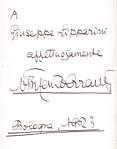 A
Giuseppe Lipparini
affettuosamente
Bologna, 1923